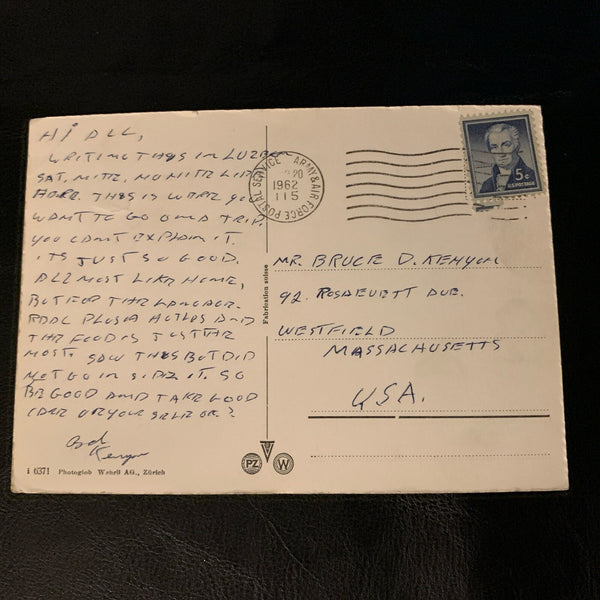 HI ALL,
WRITING THIS IN
SAT, NITE,
HERE. THIS IS WERE YOU
WANT TO GO ON A TRIP.
YOU CANT EXPLAIN IT.
ITS JUST SO GOOD.
ALL MOST LIKE HOME,
BUT FOR THE
HOTLES AND
THE FOOD IS JUST THE
MOST. SAW THIS BUT DID
NOT GO IN SIDE IT. SO
BE GOOD AND TAKE GOOD
CARE OF YOUR SELF OK?
Bob
Kenyon
i 6371 Photoglob Wehrli AG., Zürich
Fabrication suisse
PZ W
ARMY & AIR FORCE POSTAL SERVICE
20
1962
115
5c
U.S. POSTAGE
MR. BRUCE D. KENYON
92. ROSAEVETT AVE.
WESTFIELD
MASSACHUSETTS
USA.